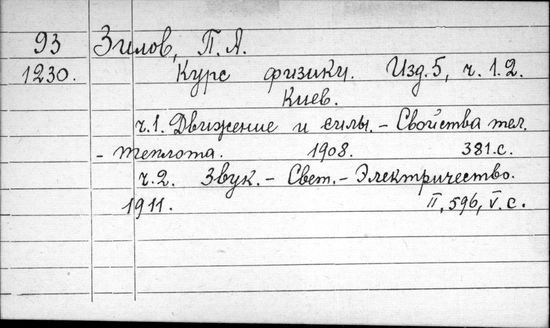 93 Зилов, П. А.
1230. Курс физики. Изд. 5, ч. 1. 2.
Киев.
ч.1. Движение и силы. - Свойства тел.
- теплота. 1908. 381.с.
ч.2. Звук. - Свет. - Электричество.
1911. II, 596, V. с.